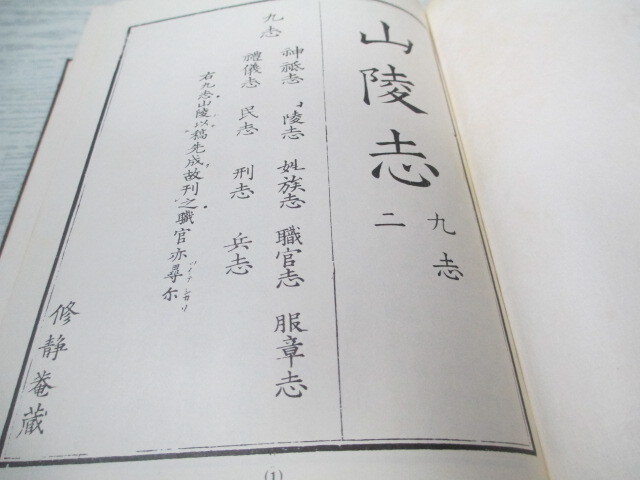 山陵志
九志
二
九志
神祇志 山陵志 姓族志 職官志 服章志
禮儀志 民志 刑志 兵志
右九志山陵以稿先成故刊之職官亦尋尓
修静菴蔵
(1)